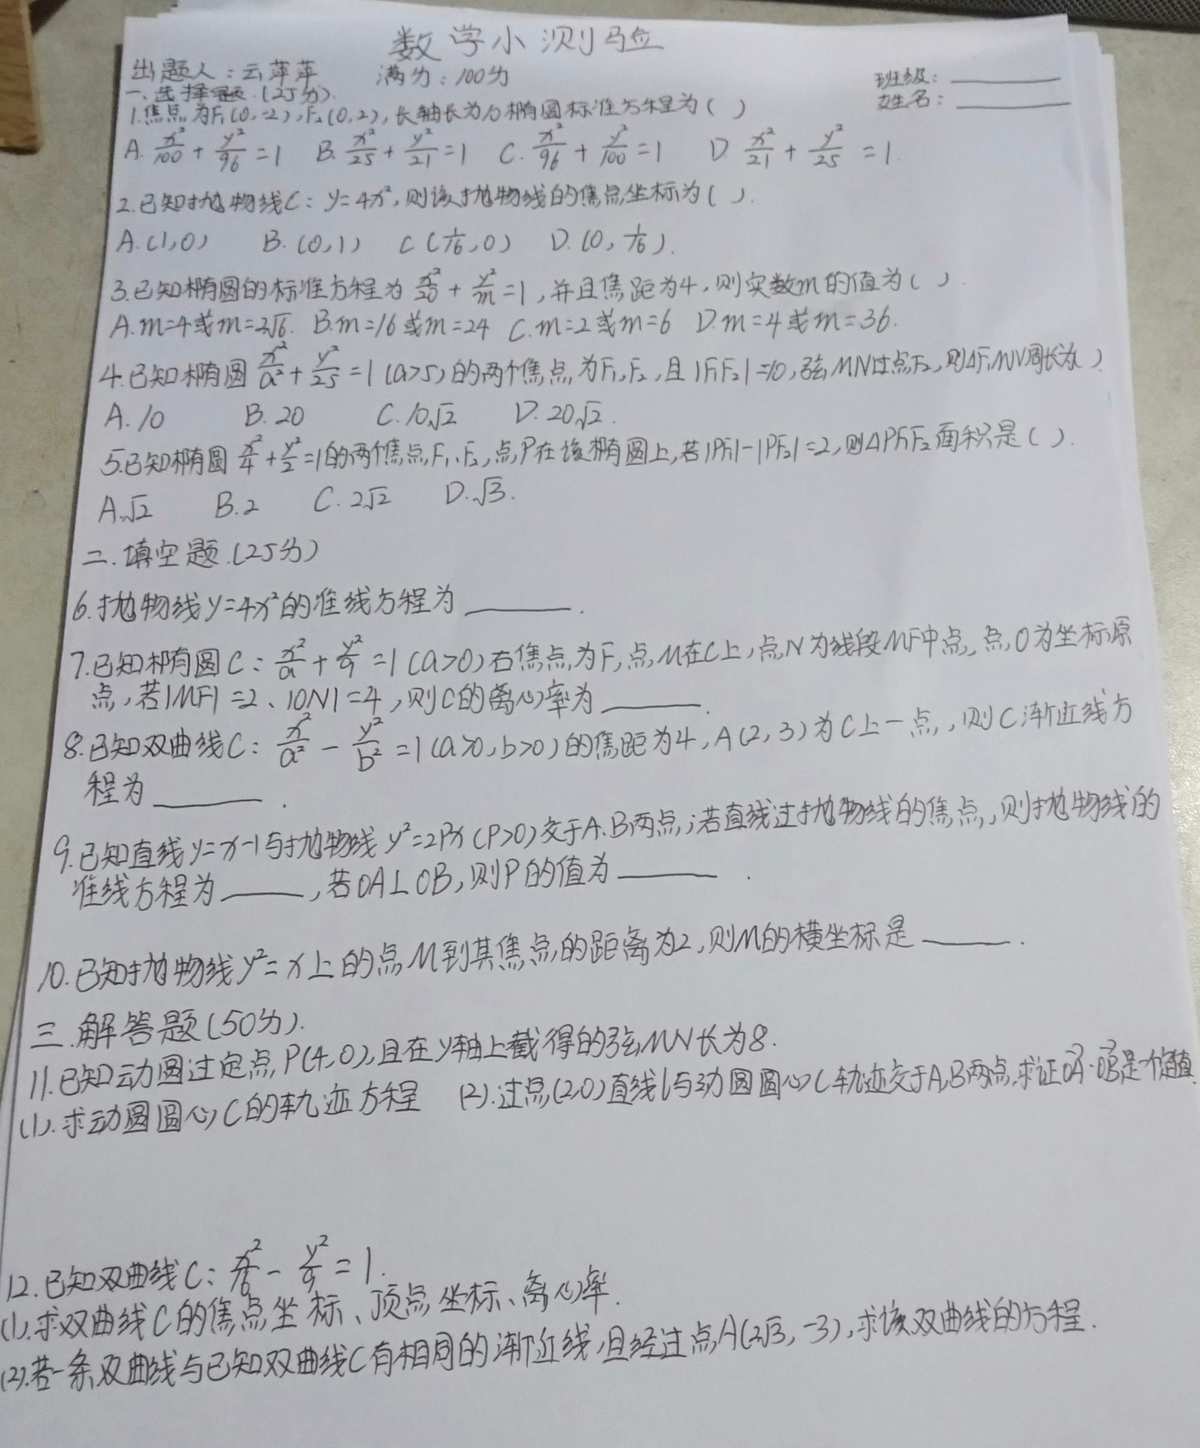 数学小测验
出题人:云萍萍 满分:100分 班级:
一、选择题.(25分). 姓名:
1.焦点为F₁(0,-2),F₂(0,2),长轴长为10椭圆标准方程为( )
A. x²/100 + y²/96 =1 B. x²/25 + y²/21 =1 C. x²/96 + y²/100 =1 D. x²/21 + y²/25 =1.
2.已知抛物线C: y=4x²,则该抛物线的焦点坐标为( ).
A.(1,0) B.(0,1) C.(1/16,0) D.(0,1/16).
3.已知椭圆的标准方程为 x²/20 + y²/m =1,并且焦距为4,则实数m的值为( ).
A.m=4或m=2√6. B.m=16或m=24 C.m=2或m=6 D.m=4或m=36.
4.已知椭圆 x²/a² + y²/25 =1(a>5)的两个焦点为F₁,F₂,且|F₁F₂|=10,弦MN过点F₂,则△F₁MN周长为( )
A.10 B.20 C.10√2 D.20√2.
5.已知椭圆 x²/4 + y²/2 =1的两个焦点F₁、F₂,点P在该椭圆上,若|PF₁|-|PF₂|=2,则△PF₁F₂面积是( ).
A.√2 B.2 C.2√2 D.√3.
二.填空题.(25分)
6.抛物线y=4x²的准线方程为 .
7.已知椭圆C: x²/a² + y²/9 =1(a>0)右焦点为F,点M在C上,点N为线段MF中点,点O为坐标原
点,若|MF|=2、|ON|=4,则C的离心率为 .
8.已知双曲线C: x²/a² - y²/b² =1(a>0,b>0)的焦距为4,A(2,3)为C上一点,则C渐近线方
程为 .
9.已知直线y=x-1与抛物线y²=2Px(P>0)交于A.B两点;若直线过抛物线的焦点,则抛物线的
准线方程为 ,若OA⊥OB,则P的值为 .
10.已知抛物线y²=x上的点M到其焦点的距离为2,则M的横坐标是 .
三.解答题(50分).
11.已知动圆过定点P(4,0),且在y轴上截得的弦MN长为8.
(1).求动圆圆心C的轨迹方程 (2).过点(2,0)直线l与动圆圆心C轨迹交于A,B两点,求证OA·OB是一个定值
12.已知双曲线C: x²/16 - y²/9 =1.
(1).求双曲线C的焦点坐标、顶点坐标、离心率.
(2).若一条双曲线与已知双曲线C有相同的渐近线,且经过点A(2√3,-3),求该双曲线的方程.